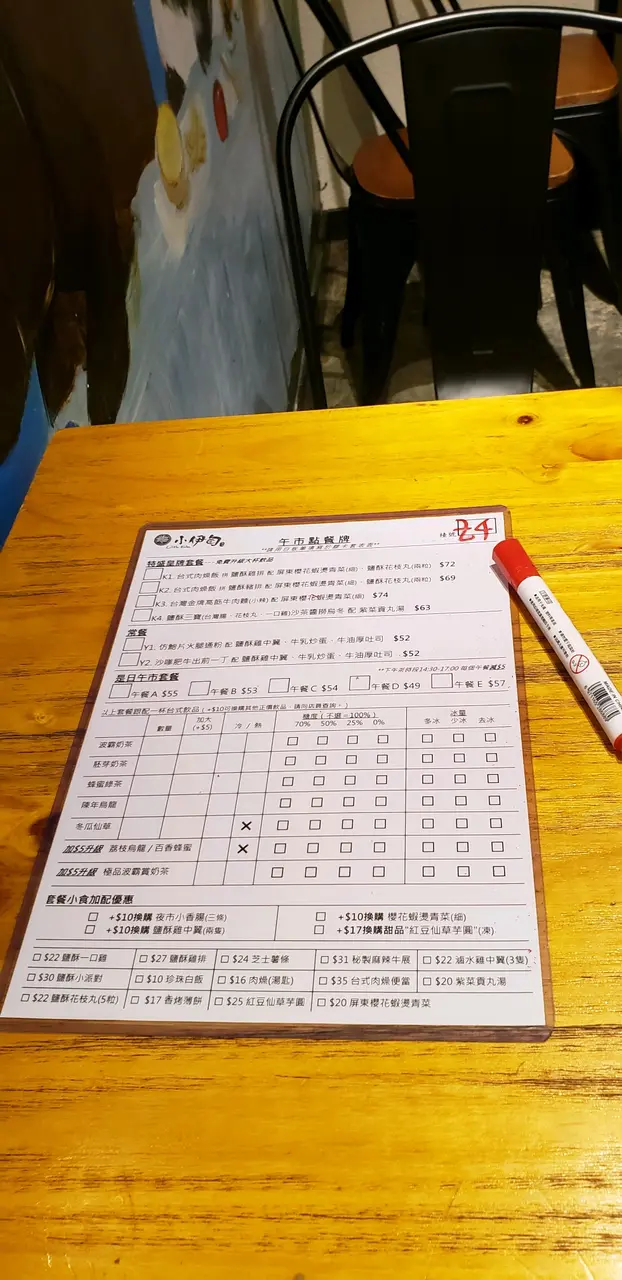 小伊句
午市點餐牌
檯號 Z4
特盛皇牌套餐 - 免費升級大杯飲品
K1. 台式肉燥飯 拼 鹽酥雞排 配 屏東櫻花蝦燙青菜(細)、鹽酥花枝丸(兩粒) $72
K2. 台式肉燥飯 拼 鹽酥豬排 配 屏東櫻花蝦燙青菜(細)、鹽酥花枝丸(兩粒) $69
K3. 台灣金牌高筋牛肉麵(小辣) 配 屏東櫻花蝦燙青菜(細) $74
K4. 鹽酥三寶(台灣腸、花枝丸、一口雞)沙茶醬撈烏冬 配 紫菜貢丸湯 $63
常餐
Y1. 仿鮑片火腿通粉 配 鹽酥雞中翼、牛乳炒蛋、牛油厚吐司 $52
Y2. 沙嗲肥牛出前一丁 配 鹽酥雞中翼、牛乳炒蛋、牛油厚吐司 $52
是日午市套餐
**下午茶時段14:30-17:00 每個午餐減$5
午餐A $55 午餐B $53 午餐C $54 午餐D $49 午餐E $57
以上套餐跟配一杯台式飲品 ( +$10可換購其他正價飲品，請向店員查詢。)
數量 加大 (+$5) 冷 / 熱 糖度 ( 不選 = 100% ) 冰量
70% 50% 25% 0% 多冰 少冰 去冰
波霸奶茶
胚芽奶茶
蜂蜜綠茶
陳年烏龍
冬瓜仙草 ×
加$5升級 荔枝烏龍 / 百香蜂蜜 ×
加$5升級 極品波霸賞奶茶
套餐小食加配優惠
+$10換購 夜市小香腸(三條) +$10換購 櫻花蝦燙青菜(細)
+$10換購 鹽酥雞中翼(兩隻) +$17換購甜品"紅豆仙草芋圓"(凍)
$22 鹽酥一口雞 $27 鹽酥雞排 $24 芝士薯條 $31 秘製麻辣牛展 $22 滷水雞中翼(3隻)
$30 鹽酥小派對 $10 珍珠白飯 $16 肉燥(湯匙) $35 台式肉燥便當 $20 紫菜貢丸湯
$22 鹽酥花枝丸(5粒) $17 香烤薄餅 $25 紅豆仙草芋圓 $20 屏東櫻花蝦燙青菜